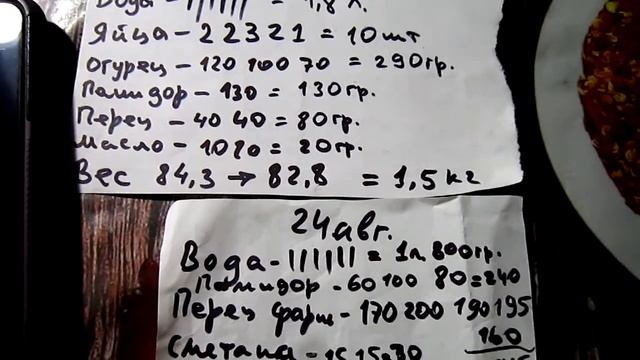 Вода - ||||||| = 1,8 л.
Яйца - 2 2 3 2 1 = 10 шт
Огурец - 120 100 70 = 290гр.
Памидор - 130 = 130гр.
Перец - 40 40 = 80гр.
Масло - 10 10 = 20гр.
Вес 84,3 → 82,8 = 1,5 кг
24 авг.
Вода - ||||||| = 1л 800гр.
Памидор - 60 100 80 = 240
Перец фарш - 170 200 190 195
160
Сметана - 15 15